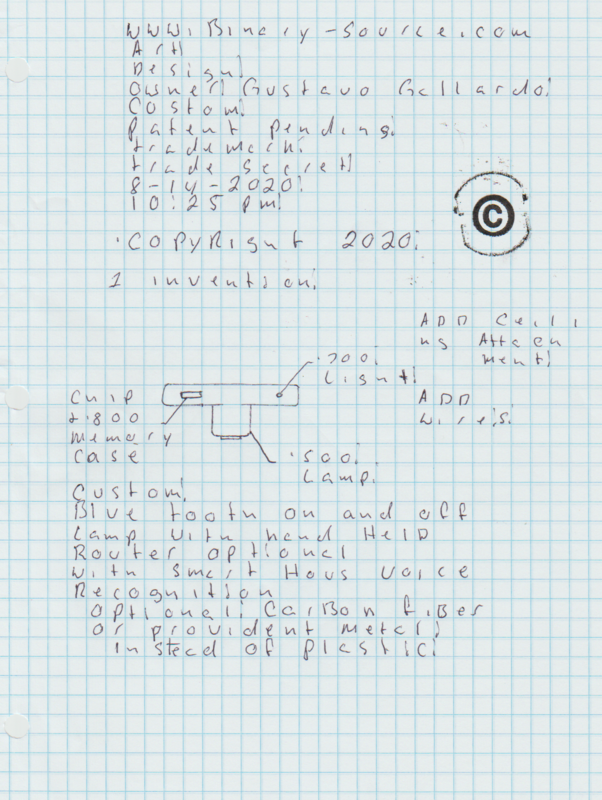 www.Binary-source.com
Art!
Design!
Owner! Gustavo Gallardo!
Custom!
Patent pending!
trademark!
trade secret!
8-14-2020!
10:25 pm!
©
.COPYRight 2020!
1 invention!
ADD Ceili
ng Attach
ment!
.700!
Light!
Chip
2.800
memory
Case
ADD
wires!
.500!
Lamp!
Custom!
Blue tooth on and off
Lamp with hand HelD
Router optional
with smart Hous voice
Recognition
optional! CarBon fiBer
or provident metal!
In stead of plastic!